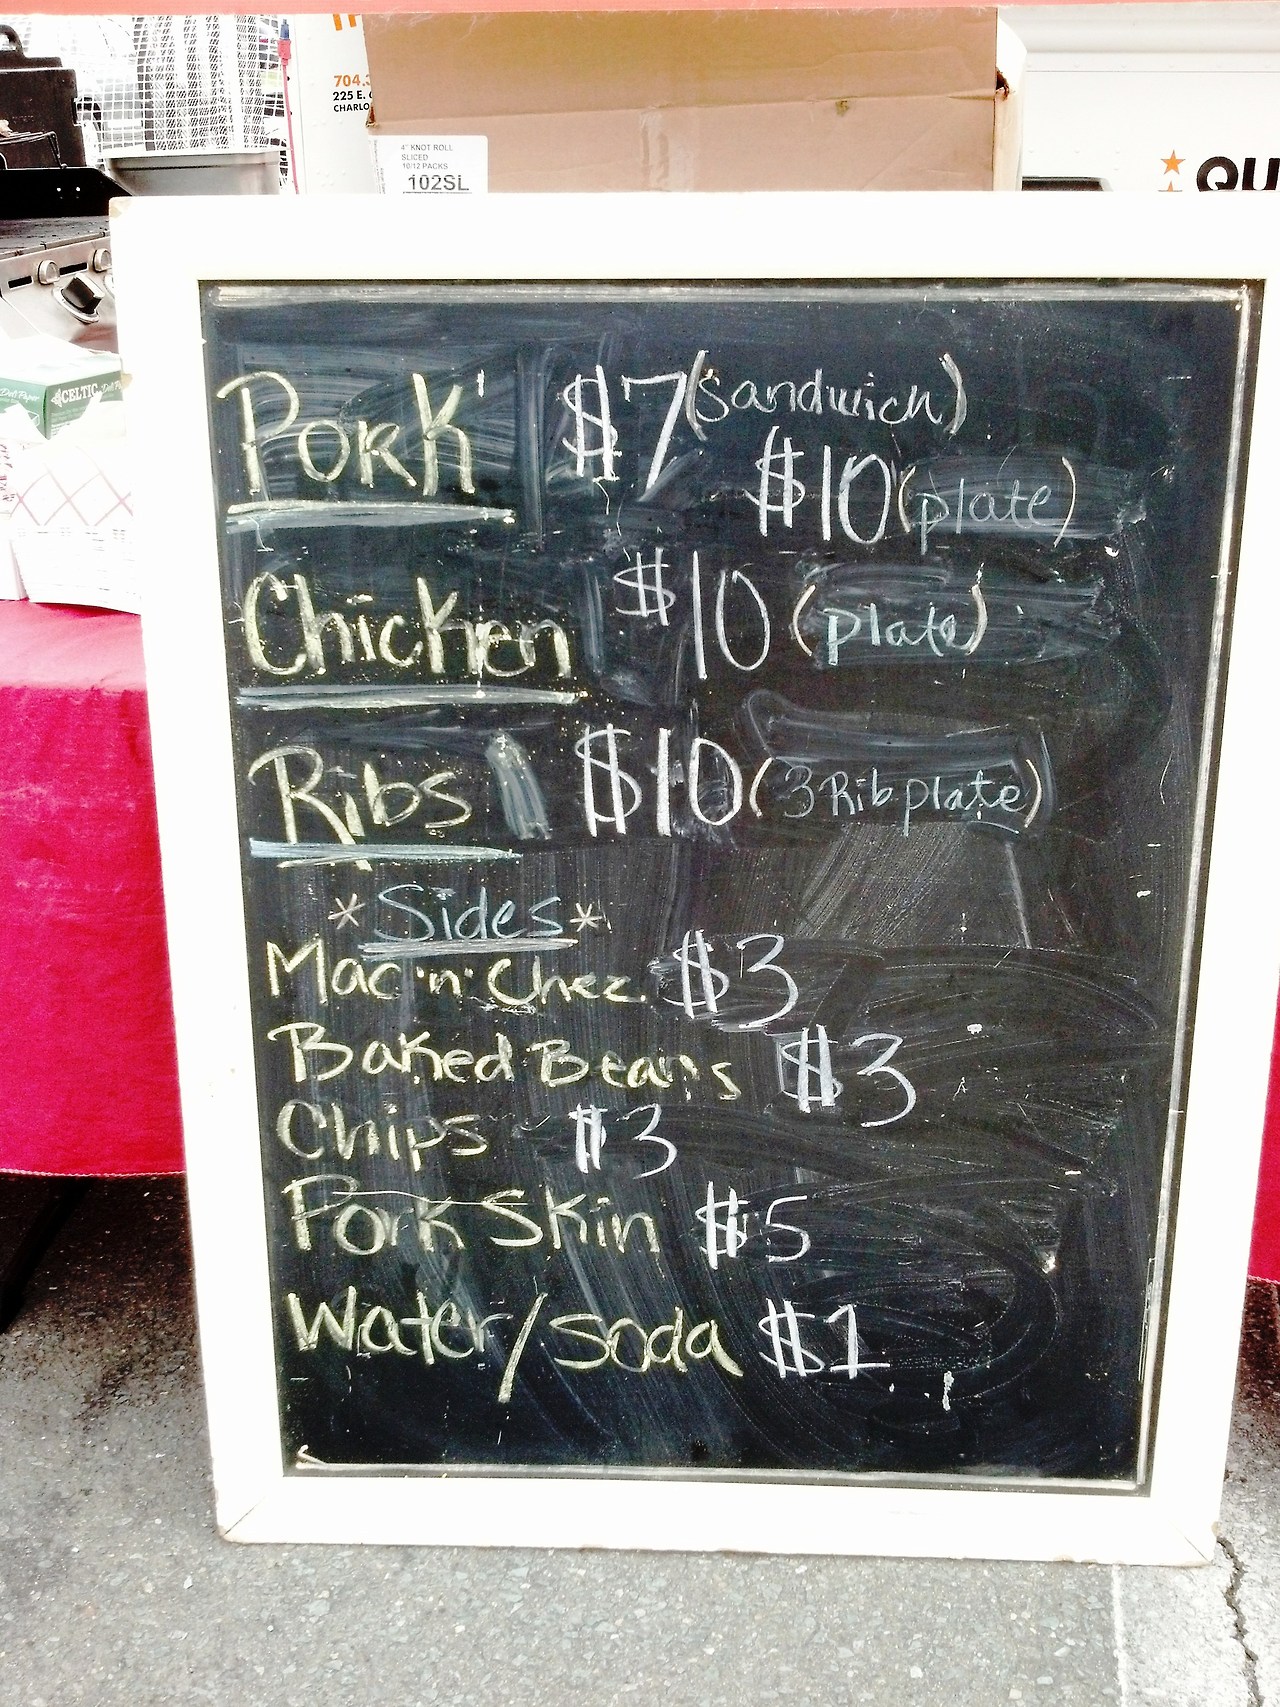 704.3
225 E. 6
CHARLO
4" KNOT ROLL
SLICED
10/12 PACKS
102SL
QU
CELTIC
Deli Paper
Pork $7 (Sandwich)
$10 (plate)
Chicken $10 (plate)
Ribs $10 (3 Rib plate)
*Sides*
Mac 'n' Chez. $3
Baked Beans $3
Chips $3
Pork Skin $5
Water/soda $1